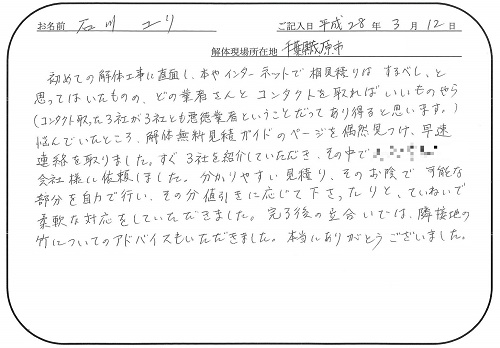 お名前 石川 ユリ ご記入日 平成 28 年 3 月 12 日
解体現場所在地 千葉県茂原市
初めての解体工事に直面し、本やインターネットで相見積りはするべし、と
思ってはいたものの、どの業者さんとコンタクトを取ればいいものやら
(コンタクト取った3社が3社とも悪徳業者ということだってあり得ると思います。)
悩んでいたところ、解体無料見積ガイドのページを偶然見つけ、早速
連絡を取りました。すぐ3社を紹介していただき、その中で
会社様に依頼しました。分かりやすい見積り、そのお陰で可能な
部分を自力で行い、その分値引きに応じて下さったりと、ていねいで
柔軟な対応をしていただきました。完了後の立合いでは、隣接地の
竹についてのアドバイスもいただきました。本当にありがとうございました。